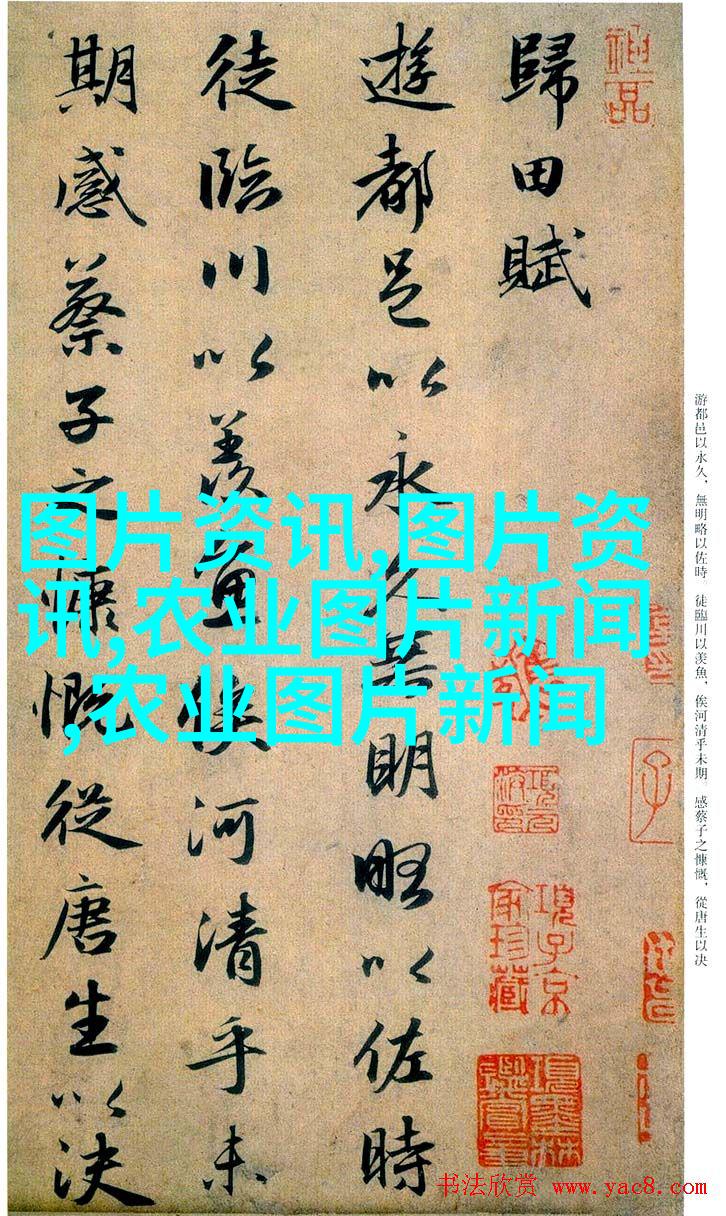 神品
歸田賦
遊都邑以永久無明略以佐時
徒臨川以羨魚俟河清乎未
期感蔡子之慷慨從唐生以決
图片资讯,图片资
讯,农业图片新闻
,农业图片新闻
子
項子京
家珍藏
項墨林
鑑賞章
游都邑以永久，無明略以佐時。徒臨川以羨魚，俟河清乎未期。感蔡子之慷慨，從唐生以决
书法欣赏 www.yac8.com